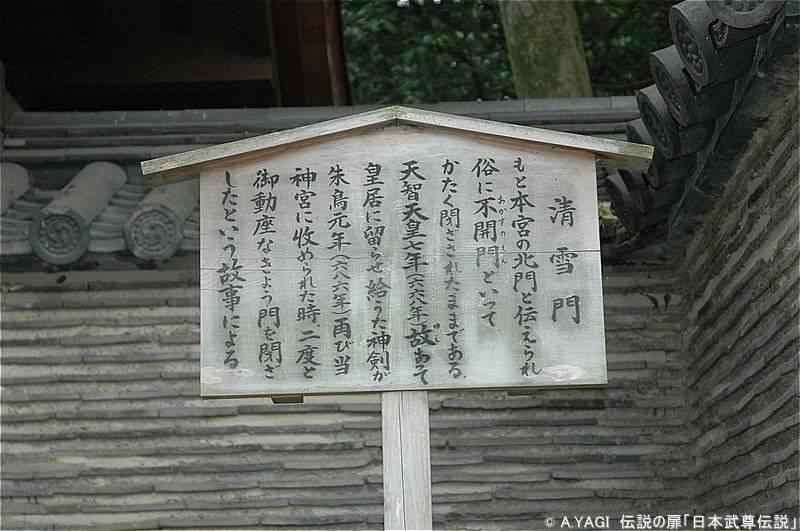 清雪門
もと本宮の北門と伝えられ
俗に不開門といって
あかずのもん
かたく閉ざされたままである
天智天皇七年(六六八年)故あって
ゆえ
皇居に留らせ給うた神剣が
朱鳥元年(六八六年)再び当
神宮に收められた時 二度と
御動座なきよう門を閉ざ
したという故事による
© A.YAGI 伝説の扉「日本武尊伝説」